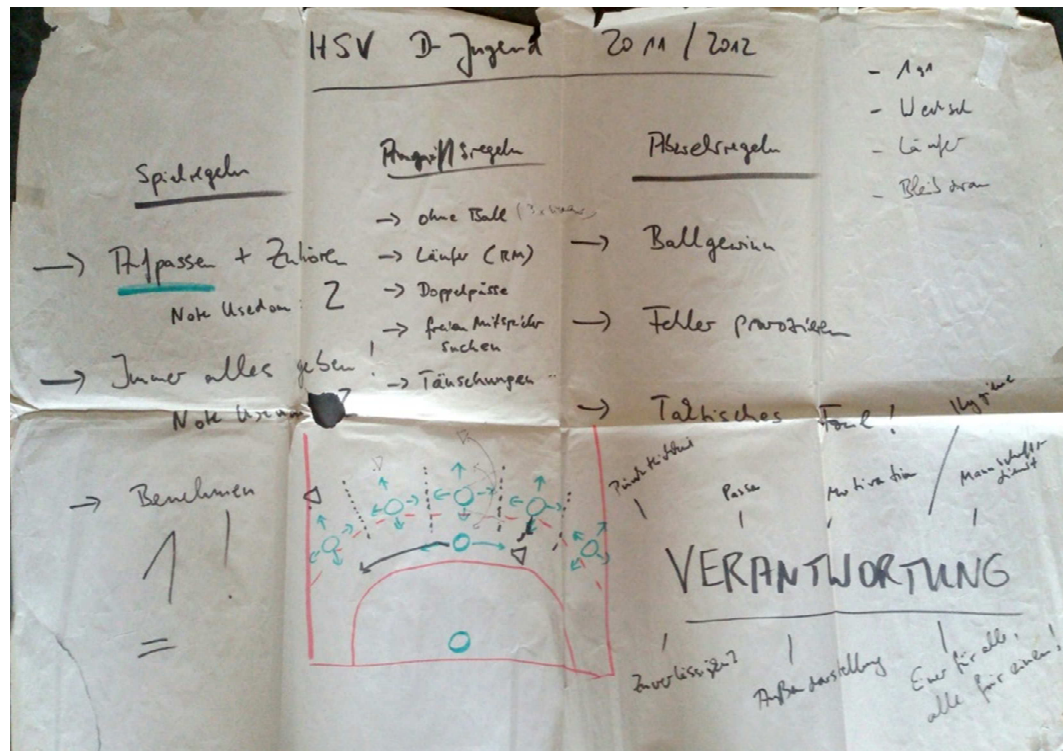 HSV D-Jugend 2011/2012
- 1g1
- Wechsel
- Läufer
- Bleib dran
Spielregeln
→ Aufpassen + Zuhören
Note Usedom: 2
→ Immer alles geben!
Note Usedom
→ Benehmen
1!
Angriffsregeln
→ ohne Ball
→ Läufer (RM)
→ Doppelpässe
→ freien Mitspieler
suchen
→ Täuschungen
Abwehrregeln
→ Ballgewinn
→ Fehler provozieren
→ Taktisches Foul!
Pünktlichkeit
Passen
Motivation
Hygiene
Mannschafts
dienst
VERANTWORTUNG
Zuverlässigkeit
Außendarstellung
Einer für alle,
alle für einen!